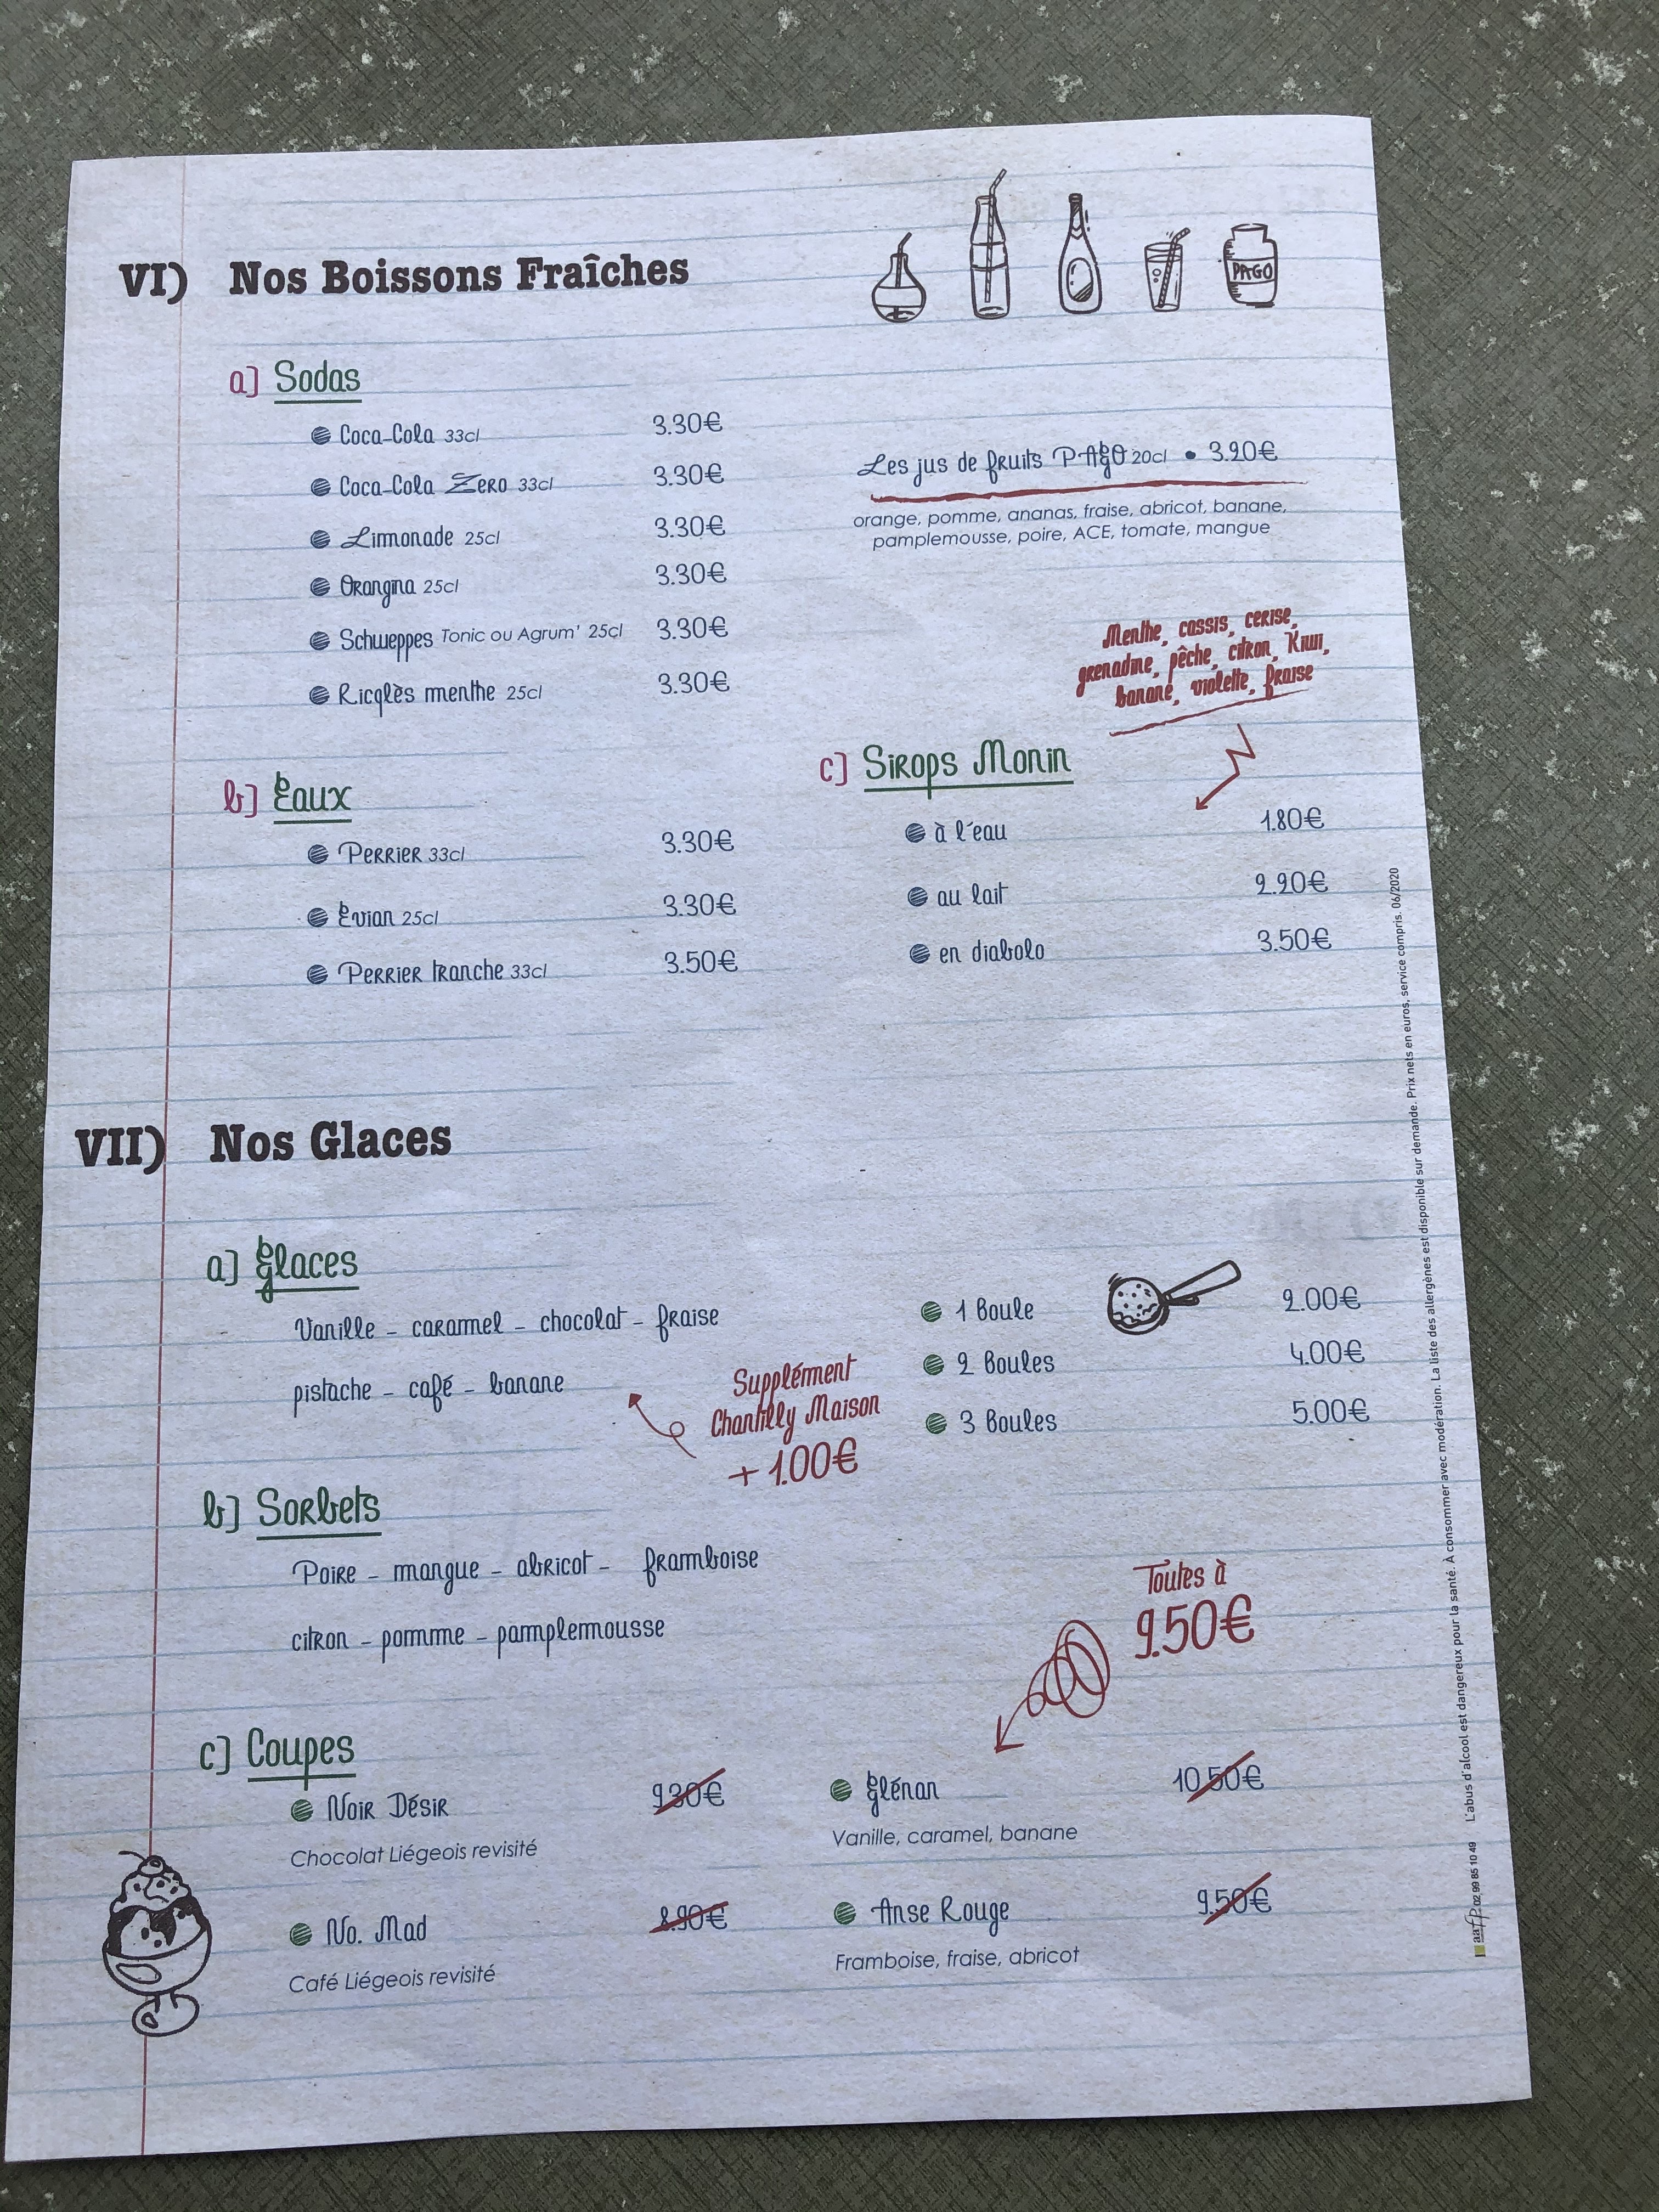 VI) Nos Boissons Fraîches
PAGO
a) Sodas
Coca-Cola 33cl 3.30€
Coca-Cola Zero 33cl 3.30€
Limonade 25cl 3.30€
Orangina 25cl 3.30€
Schweppes Tonic ou Agrum' 25cl 3.30€
Ricqlès menthe 25cl 3.30€
Les jus de fruits PAGO 20cl • 3.20€
orange, pomme, ananas, fraise, abricot, banane,
pamplemousse, poire, ACE, tomate, mangue
b) Eaux
Perrier 33cl 3.30€
Evian 25cl 3.30€
Perrier tranche 33cl 3.50€
Menthe, cassis, cerise,
grenadine, pêche, citron, Kiwi,
banane, violette, fraise
c) Sirops Monin
à l'eau 1.80€
au lait 2.20€
en diabolo 3.50€
VII) Nos Glaces
a) Glaces
Vanille - caramel - chocolat - fraise
pistache - café - banane
Supplément
Chantilly Maison
+ 1.00€
1 Boule 2.00€
2 Boules 4.00€
3 Boules 5.00€
b) Sorbets
Poire - mangue - abricot - framboise
citron - pomme - pamplemousse
Toutes à
9.50€
c) Coupes
Noir Désir 9.30€
Chocolat Liégeois revisité
No. Mad 8.90€
Café Liégeois revisité
Glénan 10.50€
Vanille, caramel, banane
Anse Rouge 9.50€
Framboise, fraise, abricot
aafp 02 99 85 10 49 L'abus d'alcool est dangereux pour la santé. À consommer avec modération. La liste des allergènes est disponible sur demande. Prix nets en euros, service compris. 06/2020